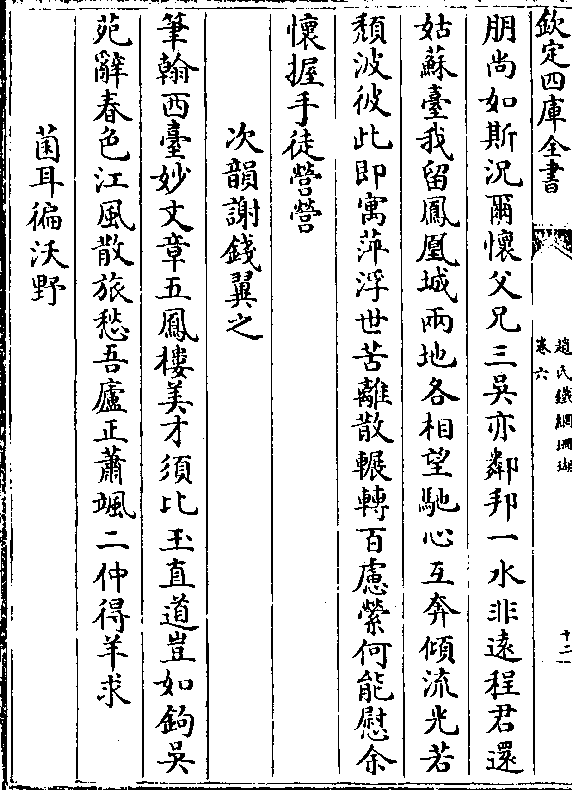 欽定四庫全書
趙氏鐵網珊瑚
卷六
十二
朋尚如斯況爾懷父兄三吳亦鄰邦一水非遠程君還
姑蘇臺我留鳳凰城兩地各相望馳心互奔傾流光若
頽波彼此即寓萍浮世苦離散輾轉百慮縈何能慰余
懷握手徒營營
次韻謝錢翼之
筆翰西臺妙文章五鳳樓美才須比玉直道豈如鉤吳
苑辭春色江風散旅愁吾廬正蕭颯二仲得羊求
菌耳徧沃野